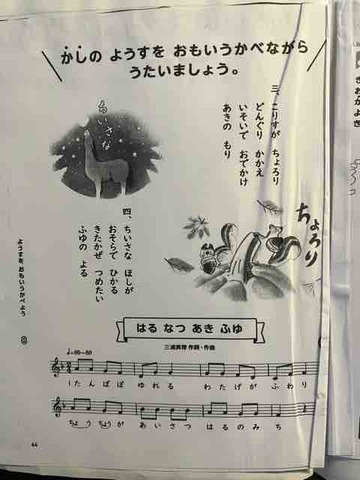 かしの ようすを おもいうかべながら
うたいましょう。
三、こりすが ちょろり
どんぐり かかえ
いそいで おでかけ
あきの もり
ちいさな
四、ちいさな ほしが
おそらで ひかる
きたかぜ つめたい
ふゆの よる
ちょろり
ようすを おもいうかべよう
はる なつ あき ふゆ
作詞・作曲
たんぽぽ ゆれる わたげが ふわり
ちょうちょうが あいさつ はるのみち
44